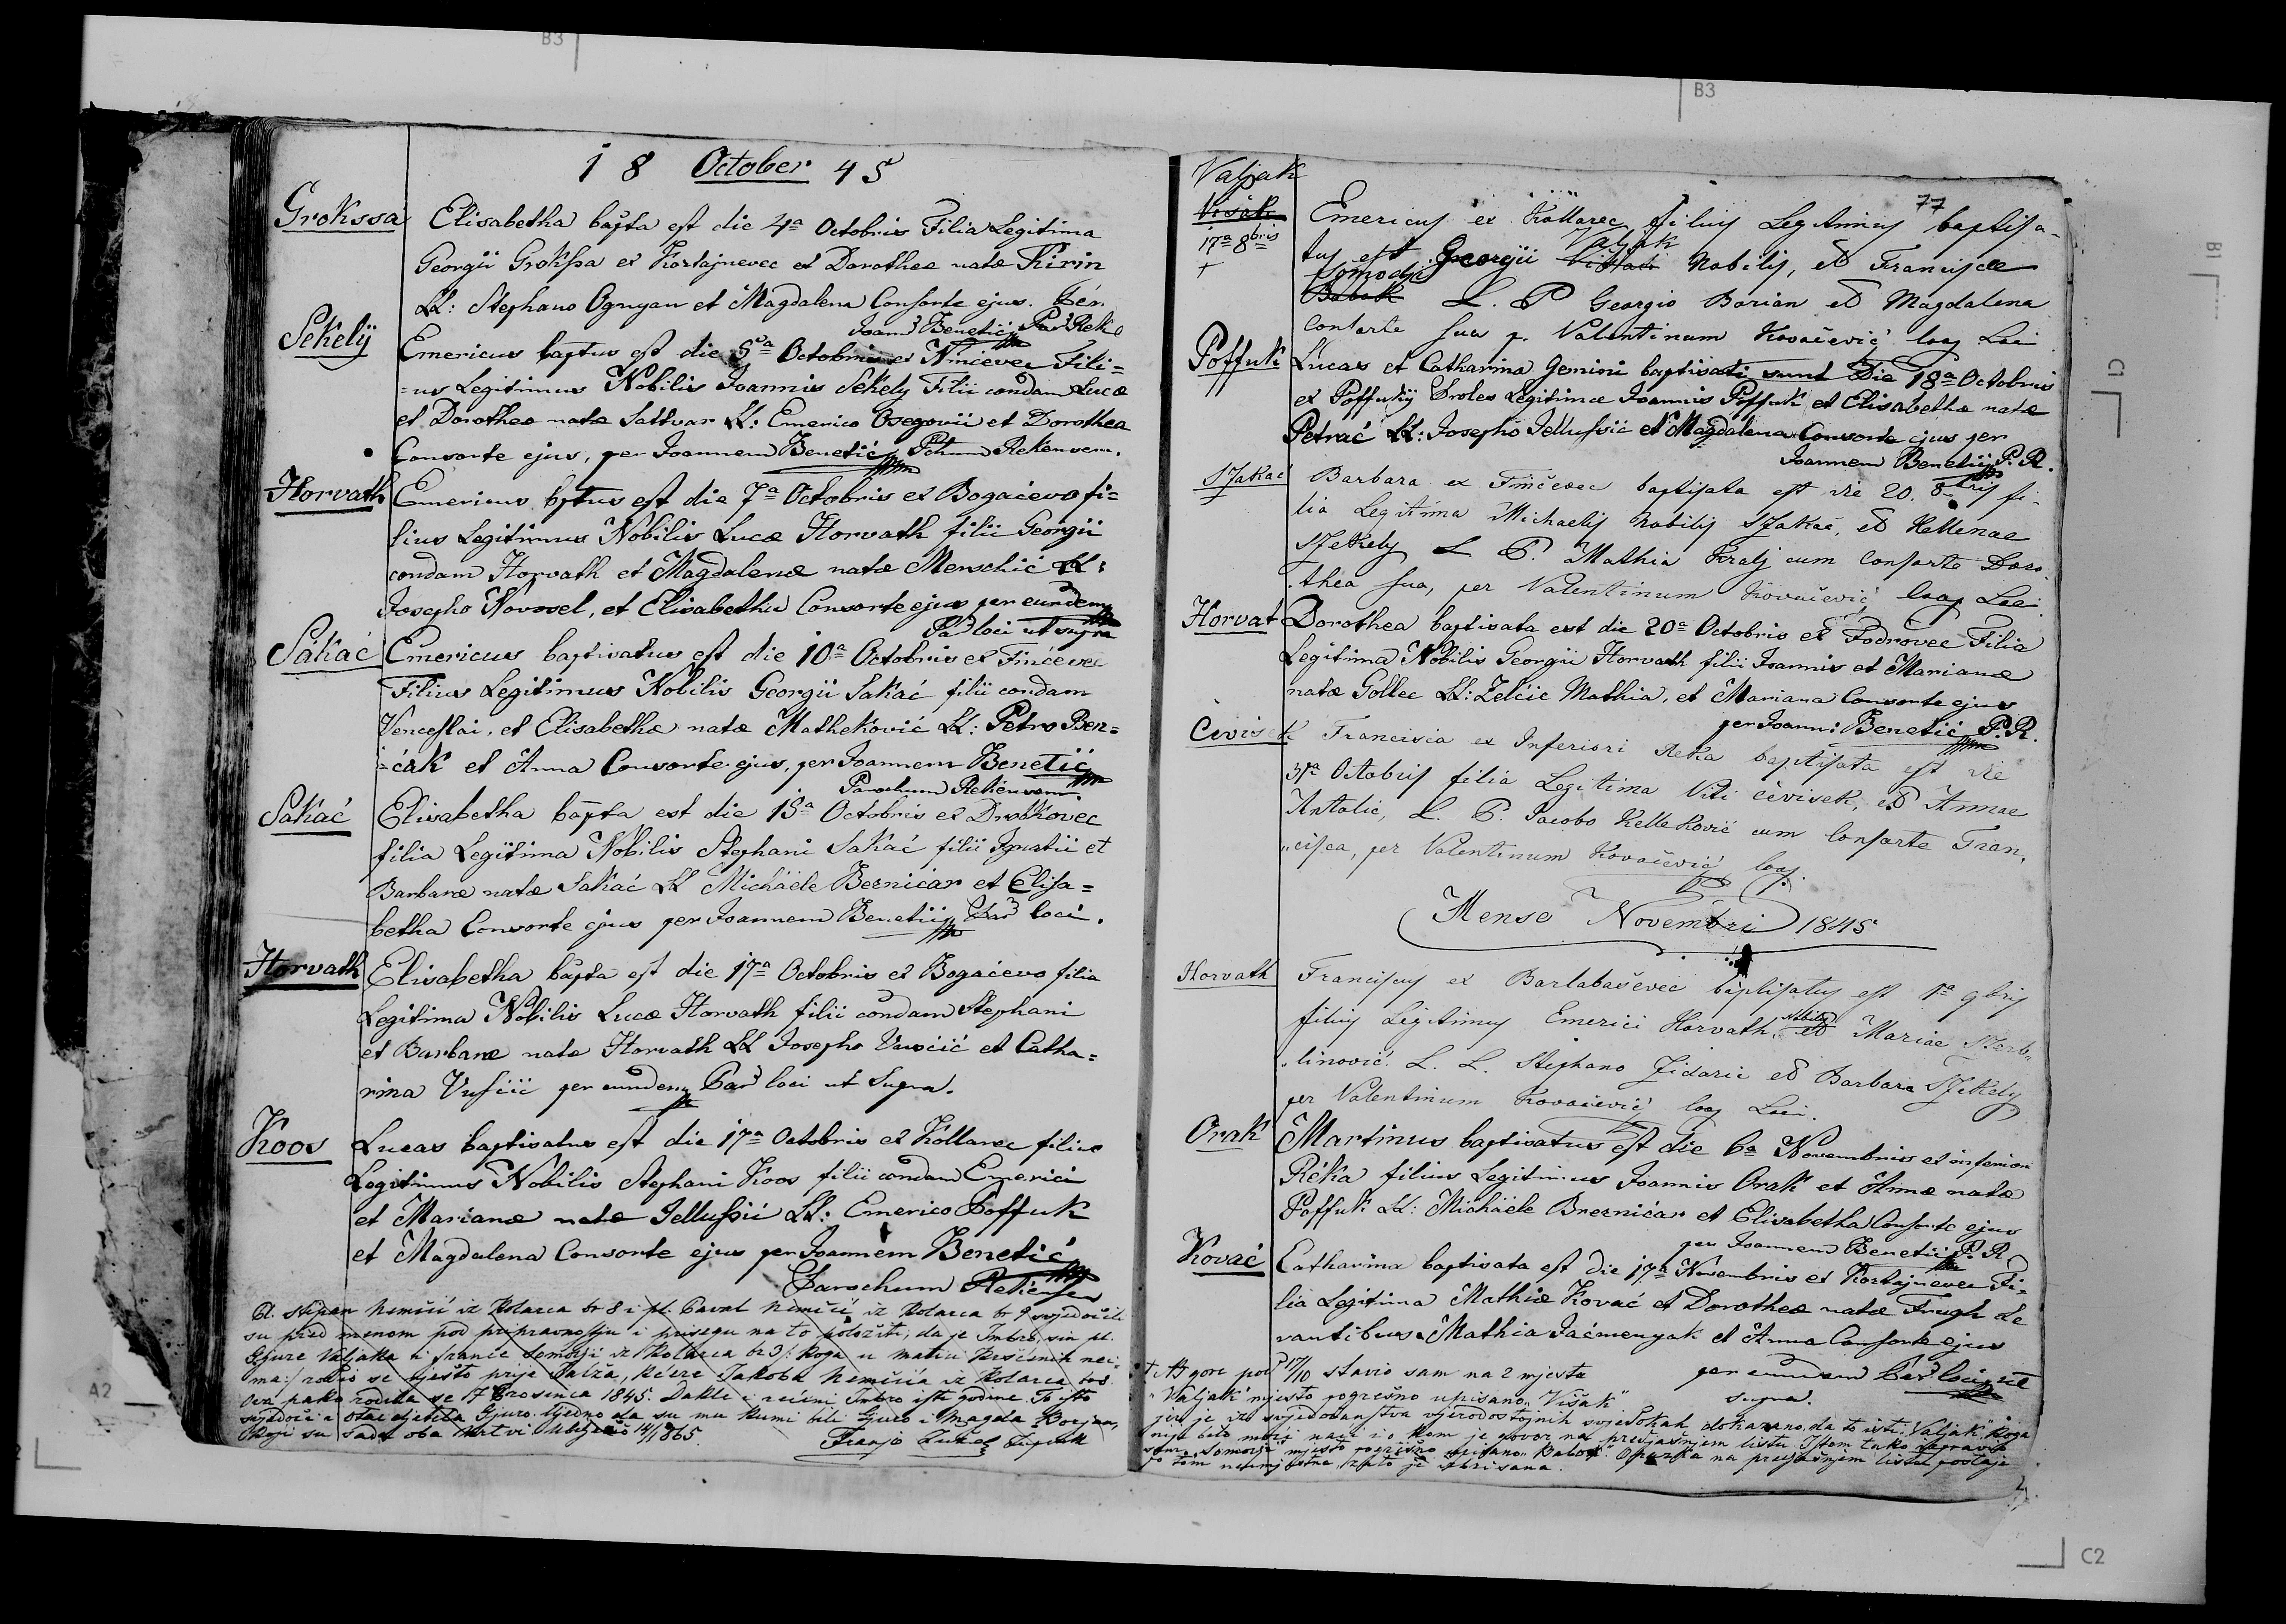 B3
B3
18 October 45
Grokssa
Elisabetha bapta est die 4a Octobris Filia Legitima
Georgii Grokssa ex Kostajnevec et Dorotheæ natæ Kirin
LL: Stephano Ognyan et Magdalena Consorte ejus. per
Joann: Benetić Par Rek
Sekelÿ
Emericus baptus est die 5ta Octobris ex Finćevec Fili=
=us Legitimus Nobilis Joannis Sekely Filii condam Lucæ
et Dorotheæ natæ Sattvar LL: Emerico Osegovii et Dorothea
Consorte ejus, per Joannem Benetić Pchum Rekensem.
Horvath
Emericus bptus est die 7a Octobris ex Bogaćevo fi=
lius Legitimus Nobilis Lucæ Horvath filii Georgii
condam Horvath et Magdalenæ natæ Menschić LL:
Josepho Novosel, et Elisabetha Consorte ejus per eundem
Par loci ut supra
Sakać
Emericus baptisatus est die 10a Octobris ex Finćevec
Filius Legitimus Nobilis Georgii Sakać filii condam
Venceslai, et Elisabethæ natæ Matheković LL: Petro Ber=
=ćak et Anna Consorte ejus, per Joannem Benetić
Parochum Rekensem.
Sakać
Elisabetha bapta est die 15a Octobris ex Drashkovec
filia Legitima Nobilis Stephani Sakać filii Ignatii et
Barbaræ natæ Sakać LL Michäele Bernićar et Elisa=
betha Consorte ejus per Joannem Benetii Par loci.
Horvath
Elisabetha bapta est die 17a Octobris ex Bogaćevo filia
Legitima Nobilis Lucæ Horvath filii condam Stephani
et Barbaræ natæ Horvath LL Josepho Vuscić et Catha=
rina Vusćii per eundem Par loci ut Supra.
Koos
Lucas baptisatus est die 17a Octobris ex Kollarec filius
Legitimus Nobilis Stephani Koos filii condam Emerici
et Marianæ natæ Jellussii LL: Emerico Poffuk
et Magdalena Consorte ejus per Joannem Benetić
Parochum Rekensem
Pl. Stipan Nemčić iz Kolarca br 8 i pl. Paval Nemčić iz Kolarca br 9 svjedočili
su pred menom pod pripravnostju i prisegu na to položiti, da je Imbro, sin pl.
Gjure Valjaka i France Somodji iz Kolarca br 3/: koga u matici krsćenih nei
ma:/ rodio se njesto prije Jalža, kćere Jakoba Nemčića iz Kolarca
Ova pako rodila se 17 Prosinca 1845. Dakle i rećeni Imbro iste godine. To isto
svjedoči i otac djeteta Gjuro. Ujedno da su mu kumi bili Gjuro i Magda Borjan,
koji su sada oba mrtvi 14/1 865.
Franjo
A2
77
Valjak
Višak
17a 8bris
+
Emericus ex Kollarec filius Legitimus baptisa-
tus est Georgii Valjak Nobilis, et Franciscæ
Somodji
Babok L. P Georgio Borian et Magdalena
Consorte sua p. Valentinum Kovačević Coop Loci
Poffuk
Lucas et Catharina Gemini baptisati sunt Die 18a Octobris
ex Poffukÿ Proles Legitimæ Joannis Poffuk et Elisabethæ natæ
Petrać LL: Josepho Jellussić et Magdalena Consorte ejus per
Joannem Benetii P. R.
SZakač
+
Barbara ex Finčevec baptisata est die 20. 8bris fi-
lia Legitima Michaelis Nobilis SZakač, et Hellenae
SZekely L P. Mathia Kralj cum Consorte Doro-
thea sua, per Valentinum Kovačević Coop Loci
Horvat
Dorothea baptisata est die 20a Octobris ex Fodrovec Filia
Legitima Nobilis Georgii Horvath filii Joannis et Marianæ
natæ Gollec LL: Zelćic Mathia, et Mariana Consorte ejus
per Joann: Benetić P. R.
Čivisek
Francisca ex Inferiori Reka baptisata est die
31a Octobris filia Legitima Viti Čivisek, et Annae
Antolic, L. P. Jacobo Kelleković cum Consorte Fran-
„cisca, per Valentinum Kovačević Coop.
Mense Novembri 1845
Horvath
Franciscus ex Barlabaševec baptisatus est 1a 9bris
filius Legitimus Emerici Horvath, Nobilis et Mariae Sterb„
„linović. L. L. Stephano Židarić et Barbara SZekely
per Valentinum Kovačević Coop Loci.
Orak
Martinus baptisatus est die 6a Novembris ex inferiori
Réka filius Legitimus Joannis Orak et Annæ natæ
Poffuk LL: Michäele Breznićar et Elisabetha Consorte ejus
per Joannem Benetii P. R
Kovać
Catharina baptisata est die 17a Novembris ex Kostajnevec Fi=
lia Legitima Mathiæ Kovać et Dorotheæ natæ Frugh Le
vantibus Mathia Jaćmenyak et Anna Consorte ejus
per eundem Par loci ut
supra.
+ gore pod 17/10 stavio sam na 2 mjesta
„Valjak" mjesto pogrešno upisano „Višak"
jer je iz svjedočanstva vjerodostojnih svjedokah dokazano, da to isti „Valjak" koga
nije bilo moći naći i o kom je govor na predjašnjem listu. Istom tako
„Somodji" mjesto pogrešno upisano „Babok". Opazka na predjašnjem listu postaje
po tom neumjestna, zato je izbrisana.
B1
C1
C2